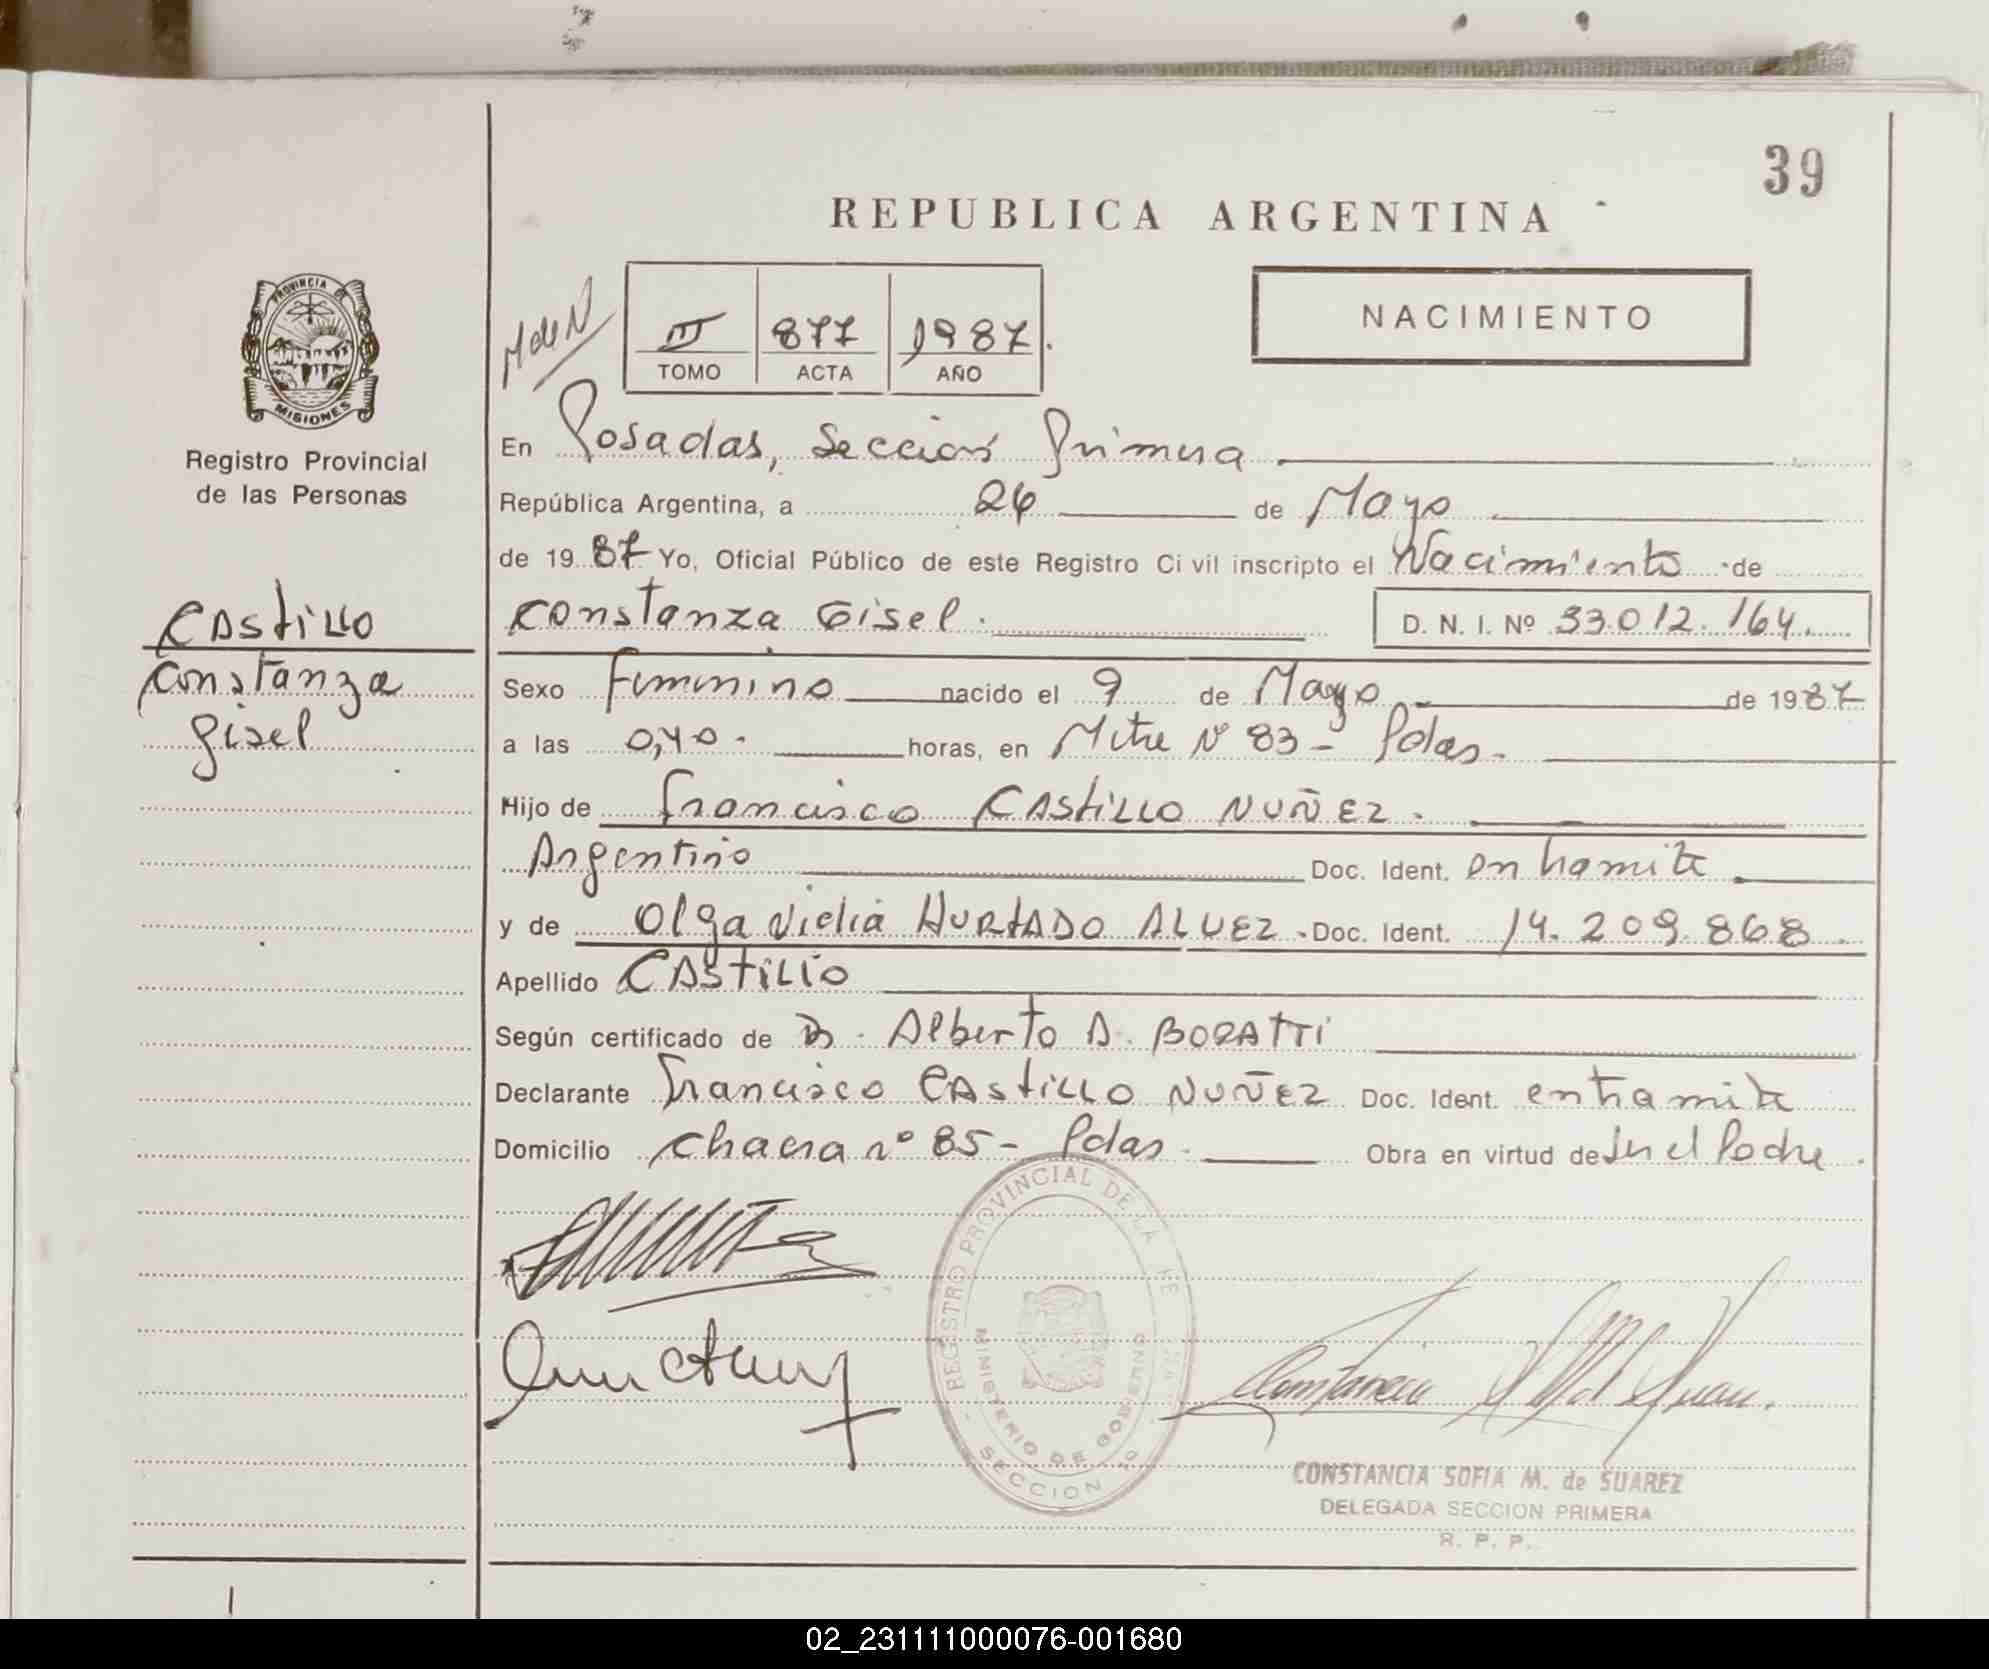 39
REPUBLICA ARGENTINA
PROVINCIA DE
MISIONES
Registro Provincial
de las Personas
CASTILLO
Constanza
Gisel
M de N
III 877 1987
TOMO ACTA AÑO
NACIMIENTO
En Posadas, Sección Primera
República Argentina, a 26 de Mayo
de 1987 Yo, Oficial Público de este Registro Civil inscripto el Nacimiento de
Constanza Gisel. D. N. I. Nº 33.012.164.
Sexo Femenino nacido el 9 de Mayo de 1987
a las 0,40. horas, en Mitre Nº 83 - Pdas.
Hijo de Francisco CASTILLO NUÑEZ.
Argentino Doc. Ident. en tramite
y de Olga HURTADO ALVEZ. Doc. Ident. 14.209.868.
Apellido CASTILLO
Según certificado de Dr. Alberto A. BORATTI
Declarante Francisco CASTILLO NUÑEZ Doc. Ident. en tramite
Domicilio Chacra nº 85 - Pdas. Obra en virtud de Ser el Padre.
REGISTRO PROVINCIAL DE LA
MINISTERIO DE GOBIERNO
SECCION
CONSTANCIA SOFIA M. de SUAREZ
DELEGADA SECCION PRIMERA
R. P. P.
02_231111000076-001680